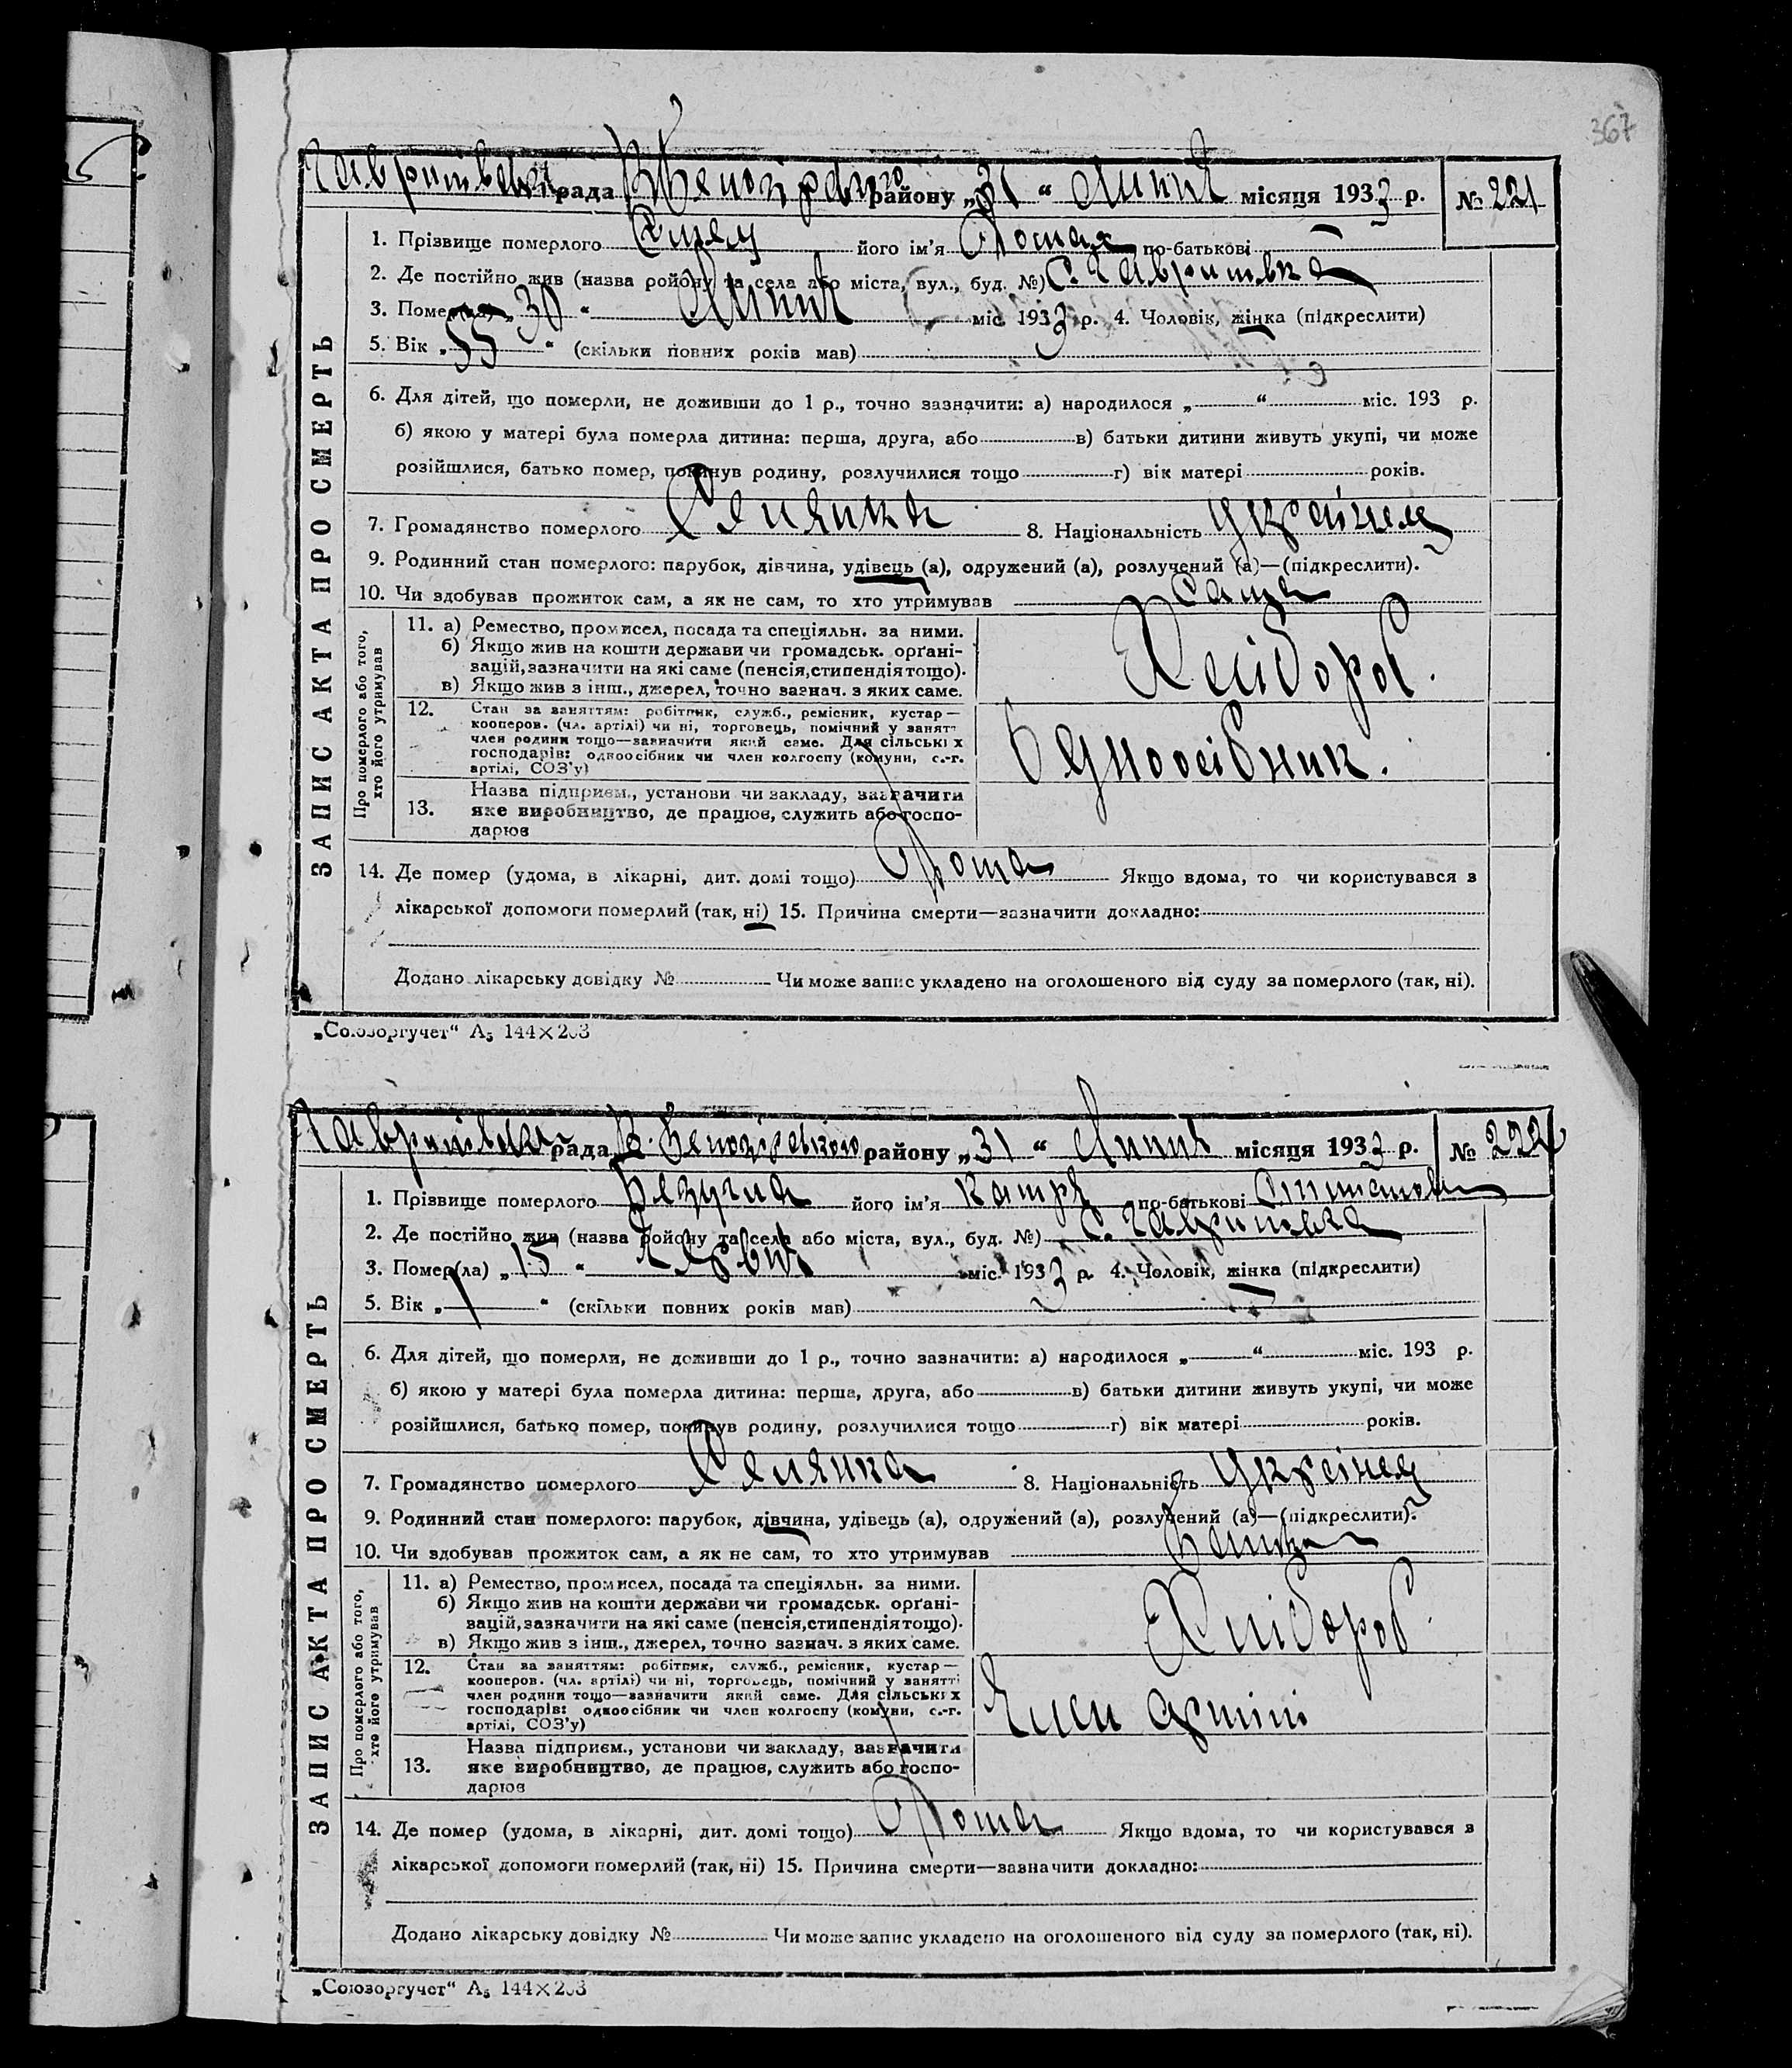 367
Гаврилівська рада району „31“ Липня місяця 1933 р. № 221
ЗАПИС АКТА ПРО СМЕРТЬ
1. Прізвище померлого його ім'я по-батькові —
2. Де постійно жив (назва району та села або міста, вул., буд. №) с. Гаврилівка
3. Помер(ла) „30“ Липня міс. 1933 р. 4. Чоловік, жінка (підкреслити)
5. Вік „55“ (скільки повних років мав)
6. Для дітей, що померли, не доживши до 1 р., точно зазначити: а) народилося „ “ міс. 193 р.
б) якою у матері була померла дитина: перша, друга, або в) батьки дитини живуть укупі, чи може
розійшлися, батько помер, покинув родину, розлучилися тощо г) вік матері років.
7. Громадянство померлого Селянка 8. Національність Українец
9. Родинний стан померлого: парубок, дівчина, удівець (а), одружений (а), розлучений (а)—(підкреслити).
10. Чи здобував прожиток сам, а як не сам, то хто утримував Сама
Про померлого або того, хто його утримував
11. а) Ремество, промисел, посада та спеціяльн. за ними.
б) Якщо жив на кошти держави чи громадськ. орґані-
зацій, зазначити на які саме (пенсія, стипендія тощо).
в) Якщо жив з інш., джерел, точно зазнач. з яких саме.
Хлібороб.
12. Стан за заняттям: робітник, служб., ремісник, кустар—
кооперов. (чл. артілі) чи ні, торговець, помічний у занятт
член родини тощо—зазначити який саме. Для сільських
господарів: одноосібник чи член колгоспу (комуни, с.-г.
артілі, СОЗ'у)
Одноосібник.
13. Назва підприєм., установи чи закладу, зазначити
яке виробництво, де працює, служить або госпо-
дарює
14. Де помер (удома, в лікарні, дит. домі тощо) Дома Якщо вдома, то чи користувався з
лікарської допомоги померлий (так, ні) 15. Причина смерти—зазначити докладно:
Додано лікарську довідку № Чи може запис укладено на оголошеного від суду за померлого (так, ні).
„Союзоргучет“ А₅ 144×203
Гаврилівська рада району „31“ Липня місяця 1933 р. № 222
ЗАПИС АКТА ПРО СМЕРТЬ
1. Прізвище померлого Безугла його ім'я Катря по-батькові
2. Де постійно жив (назва району та села або міста, вул., буд. №) с. Гаврилівка
3. Помер(ла) „15“ міс. 1933 р. 4. Чоловік, жінка (підкреслити)
5. Вік „1“ (скільки повних років мав)
6. Для дітей, що померли, не доживши до 1 р., точно зазначити: а) народилося „ “ міс. 193 р.
б) якою у матері була померла дитина: перша, друга, або в) батьки дитини живуть укупі, чи може
розійшлися, батько помер, покинув родину, розлучилися тощо г) вік матері років.
7. Громадянство померлого Селянка 8. Національність Українец
9. Родинний стан померлого: парубок, дівчина, удівець (а), одружений (а), розлучений (а)—(підкреслити).
10. Чи здобував прожиток сам, а як не сам, то хто утримував
Про померлого або того, хто його утримував
11. а) Ремество, промисел, посада та спеціяльн. за ними.
б) Якщо жив на кошти держави чи громадськ. орґані-
зацій, зазначити на які саме (пенсія, стипендія тощо).
в) Якщо жив з інш., джерел, точно зазнач. з яких саме.
Хлібороб.
12. Стан за заняттям: робітник, служб., ремісник, кустар—
кооперов. (чл. артілі) чи ні, торговець, помічний у занятті
член родини тощо—зазначити який саме. Для сільських
господарів: одноосібник чи член колгоспу (комуни, с.-г.
артілі, СОЗ'у)
Член артілі
13. Назва підприєм., установи чи закладу, зазначити
яке виробництво, де працює, служить або госпо-
дарює
14. Де помер (удома, в лікарні, дит. домі тощо) Дома Якщо вдома, то чи користувався з
лікарської допомоги померлий (так, ні) 15. Причина смерти—зазначити докладно:
Додано лікарську довідку № Чи може запис укладено на оголошеного від суду за померлого (так, ні).
„Союзоргучет“ А₅ 144×203